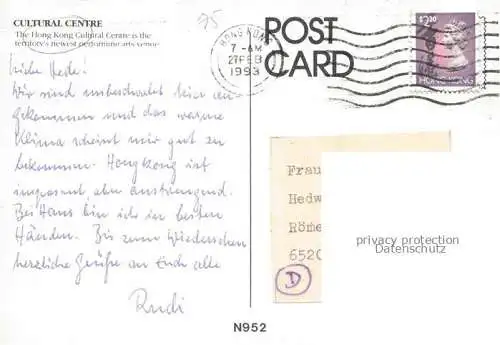 75
CULTURAL CENTRE
The Hong Kong Cultural Centre is the
territory's newest performing arts venue
Liebe Hede!
Wir sind unbeschadet hier an-
gekommen und das warme
Klima scheint mir gut zu
bekommen. Hongkong ist
imposant aber anstrengend.
Bei Hans bin ich in besten
Händen. Bis zum Wiedersehen
herzliche Grüße an Euch alle
Rudi
HONG KONG
7 - AM
27 FEB
1993
POST
CARD
$2.30
HONG KONG
Frau
Hedw
Röme
6520
D
privacy protection
Datenschutz
N952